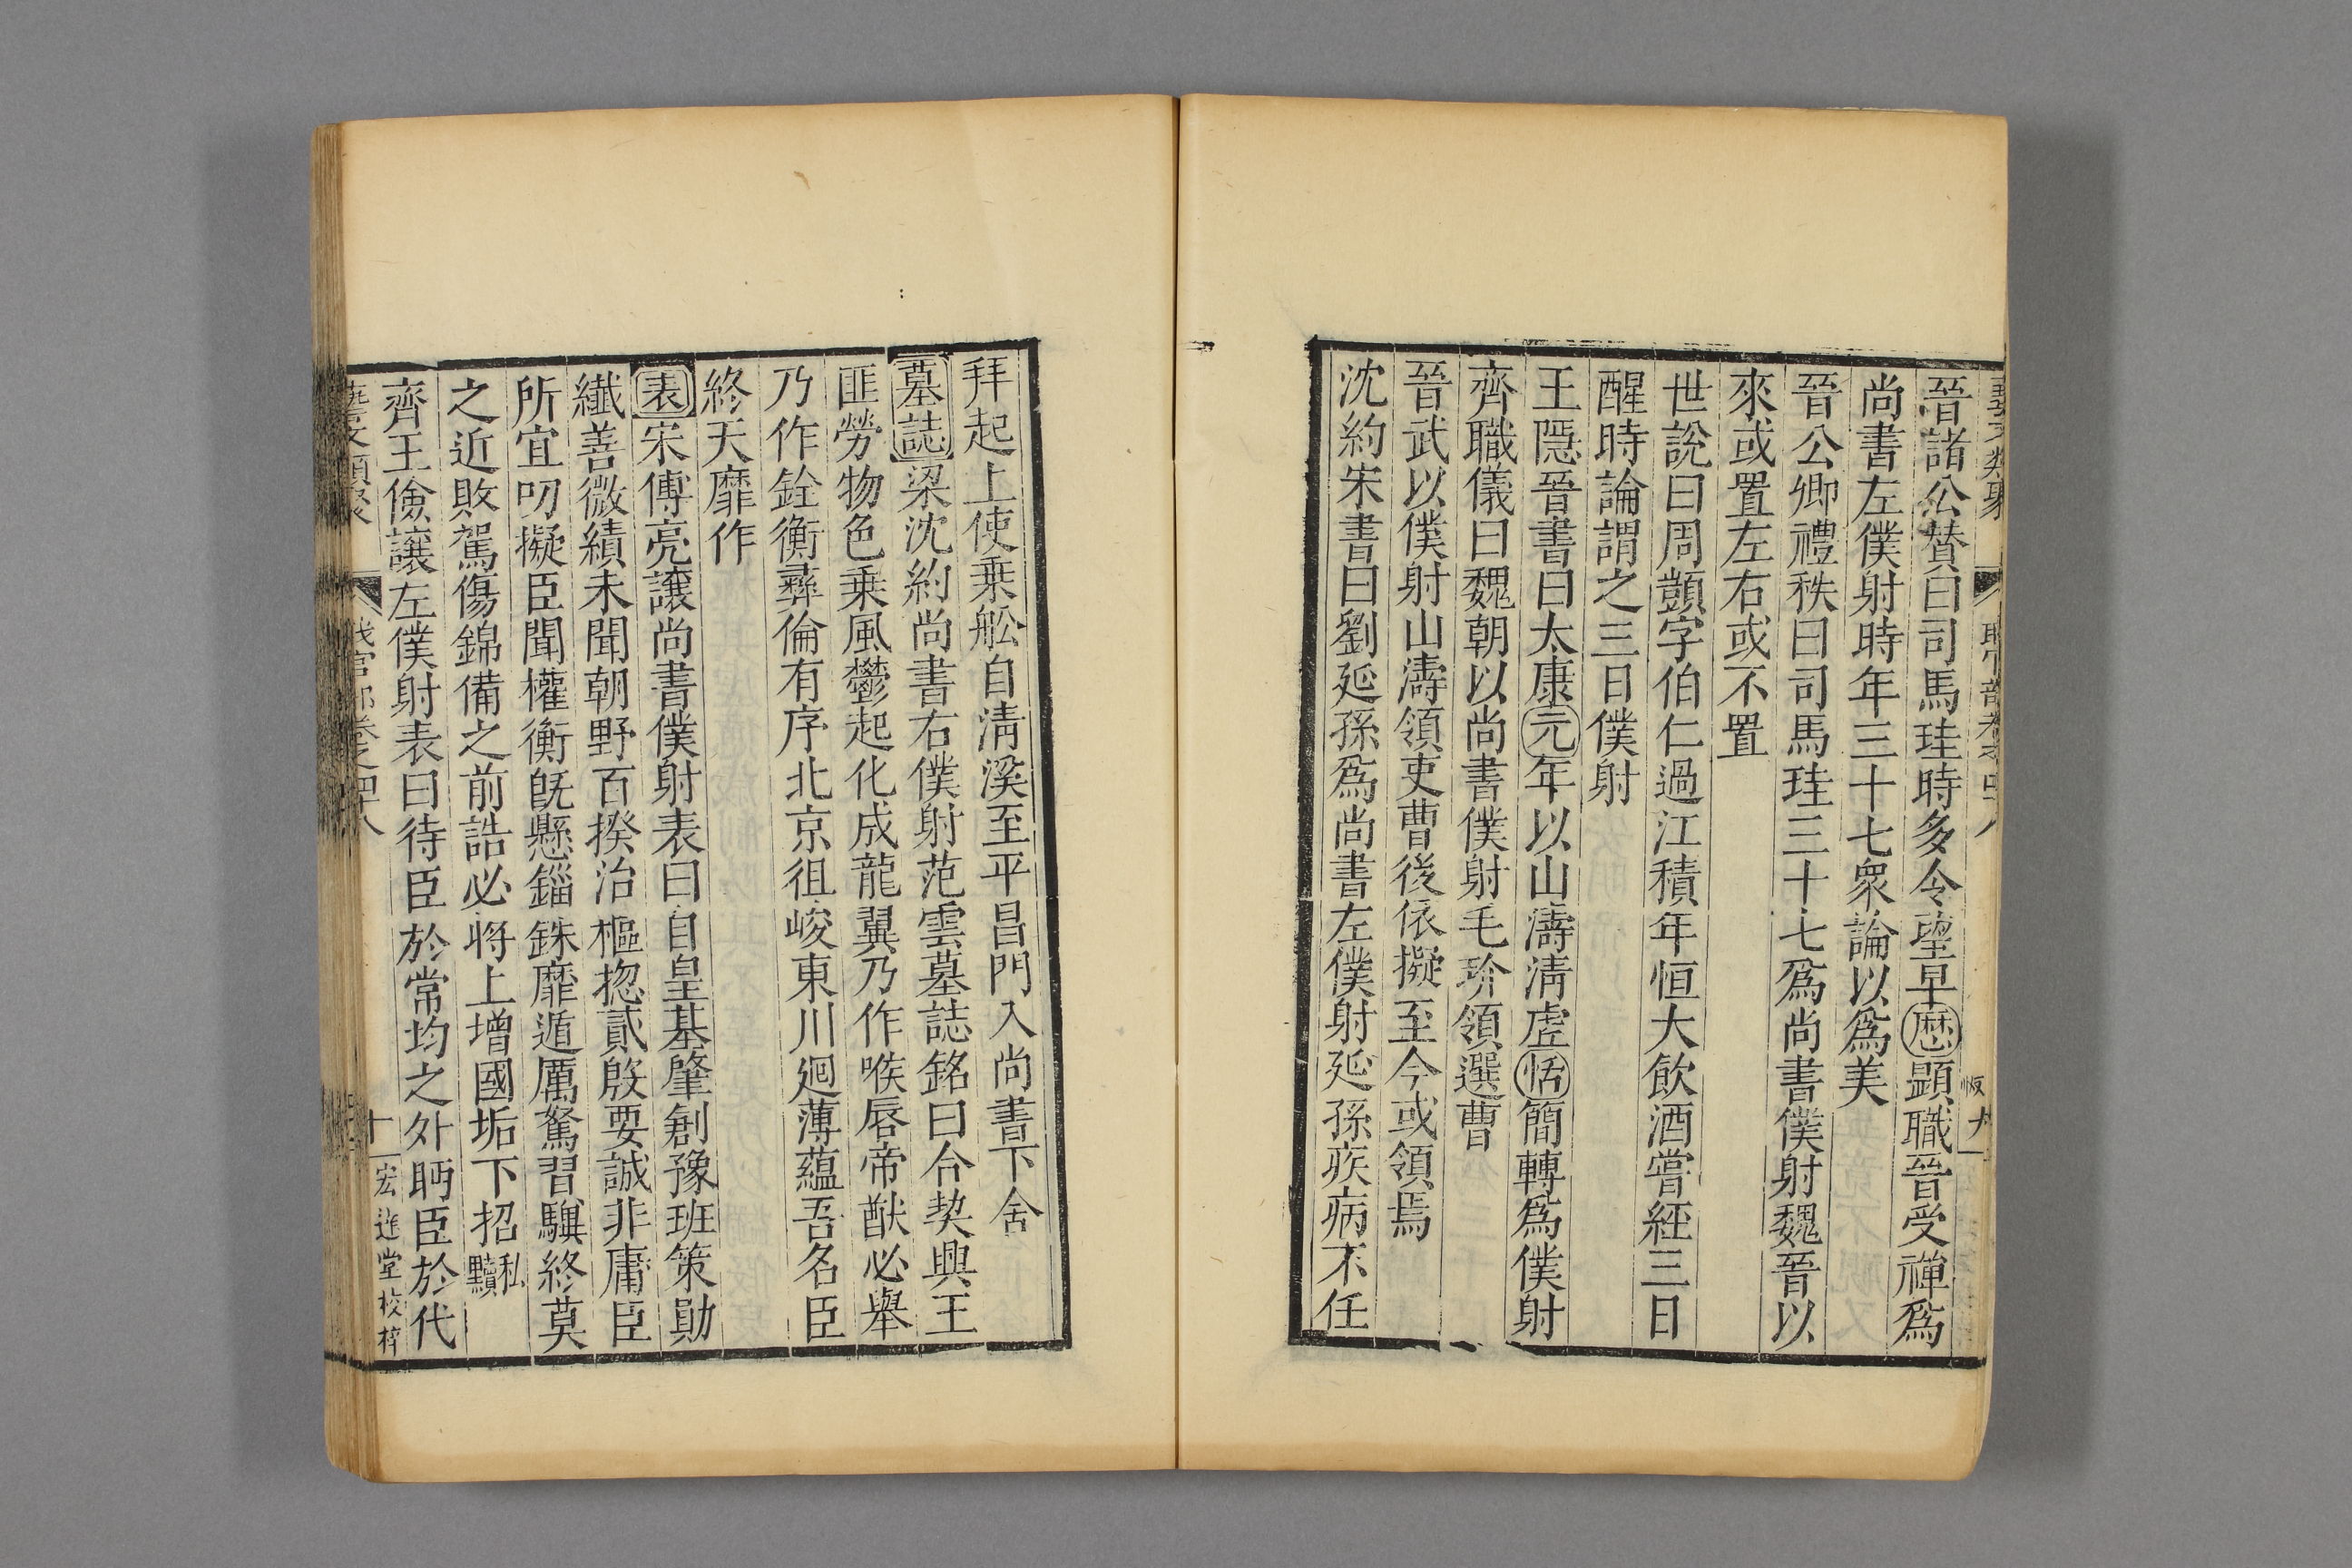 晉諸公贊曰司馬珪時多令望早歴顯職晉受禪爲
尚書左僕射時年三十七衆論以爲美
晉公卿禮秩曰司馬珪三十七爲尚書僕射魏晉以
來或置左右或不置
世說曰周顗字伯仁過江積年恒大飲酒嘗經三日
醒時論謂之三日僕射
王隱晉書曰太康元年以山濤淸虗恬簡轉爲僕射
齊職儀曰魏朝以尚書僕射毛玠領選曹
晉武以僕射山濤領吏曹後依擬至今或領焉
沈約宋書曰劉延孫爲尚書左僕射延孫疾病不任
拜起上使乗舩自淸溪至平昌門入尚書下舍
墓誌梁沈約尚書右僕射范雲墓誌銘曰合契興王
匪勞物色乗風鬱起化成龍翼乃作喉唇帝猷必舉
乃作銓衡彞倫有序北京徂峻東川廻薄蘊吾名臣
終天靡作
表宋傅亮讓尚書僕射表曰自皇基肇創豫班策勛
纎善微績未聞朝野百揆治樞揔貳殷要誠非庸臣
所宜叨擬臣聞權衡旣懸錙銖靡遁厲駑習驥終莫
之近敗駕傷錦備之前誥必將上增國垢下招私黷
齊王儉讓左僕射表曰待臣於常均之外眄臣於代
十
宏逵堂校梓